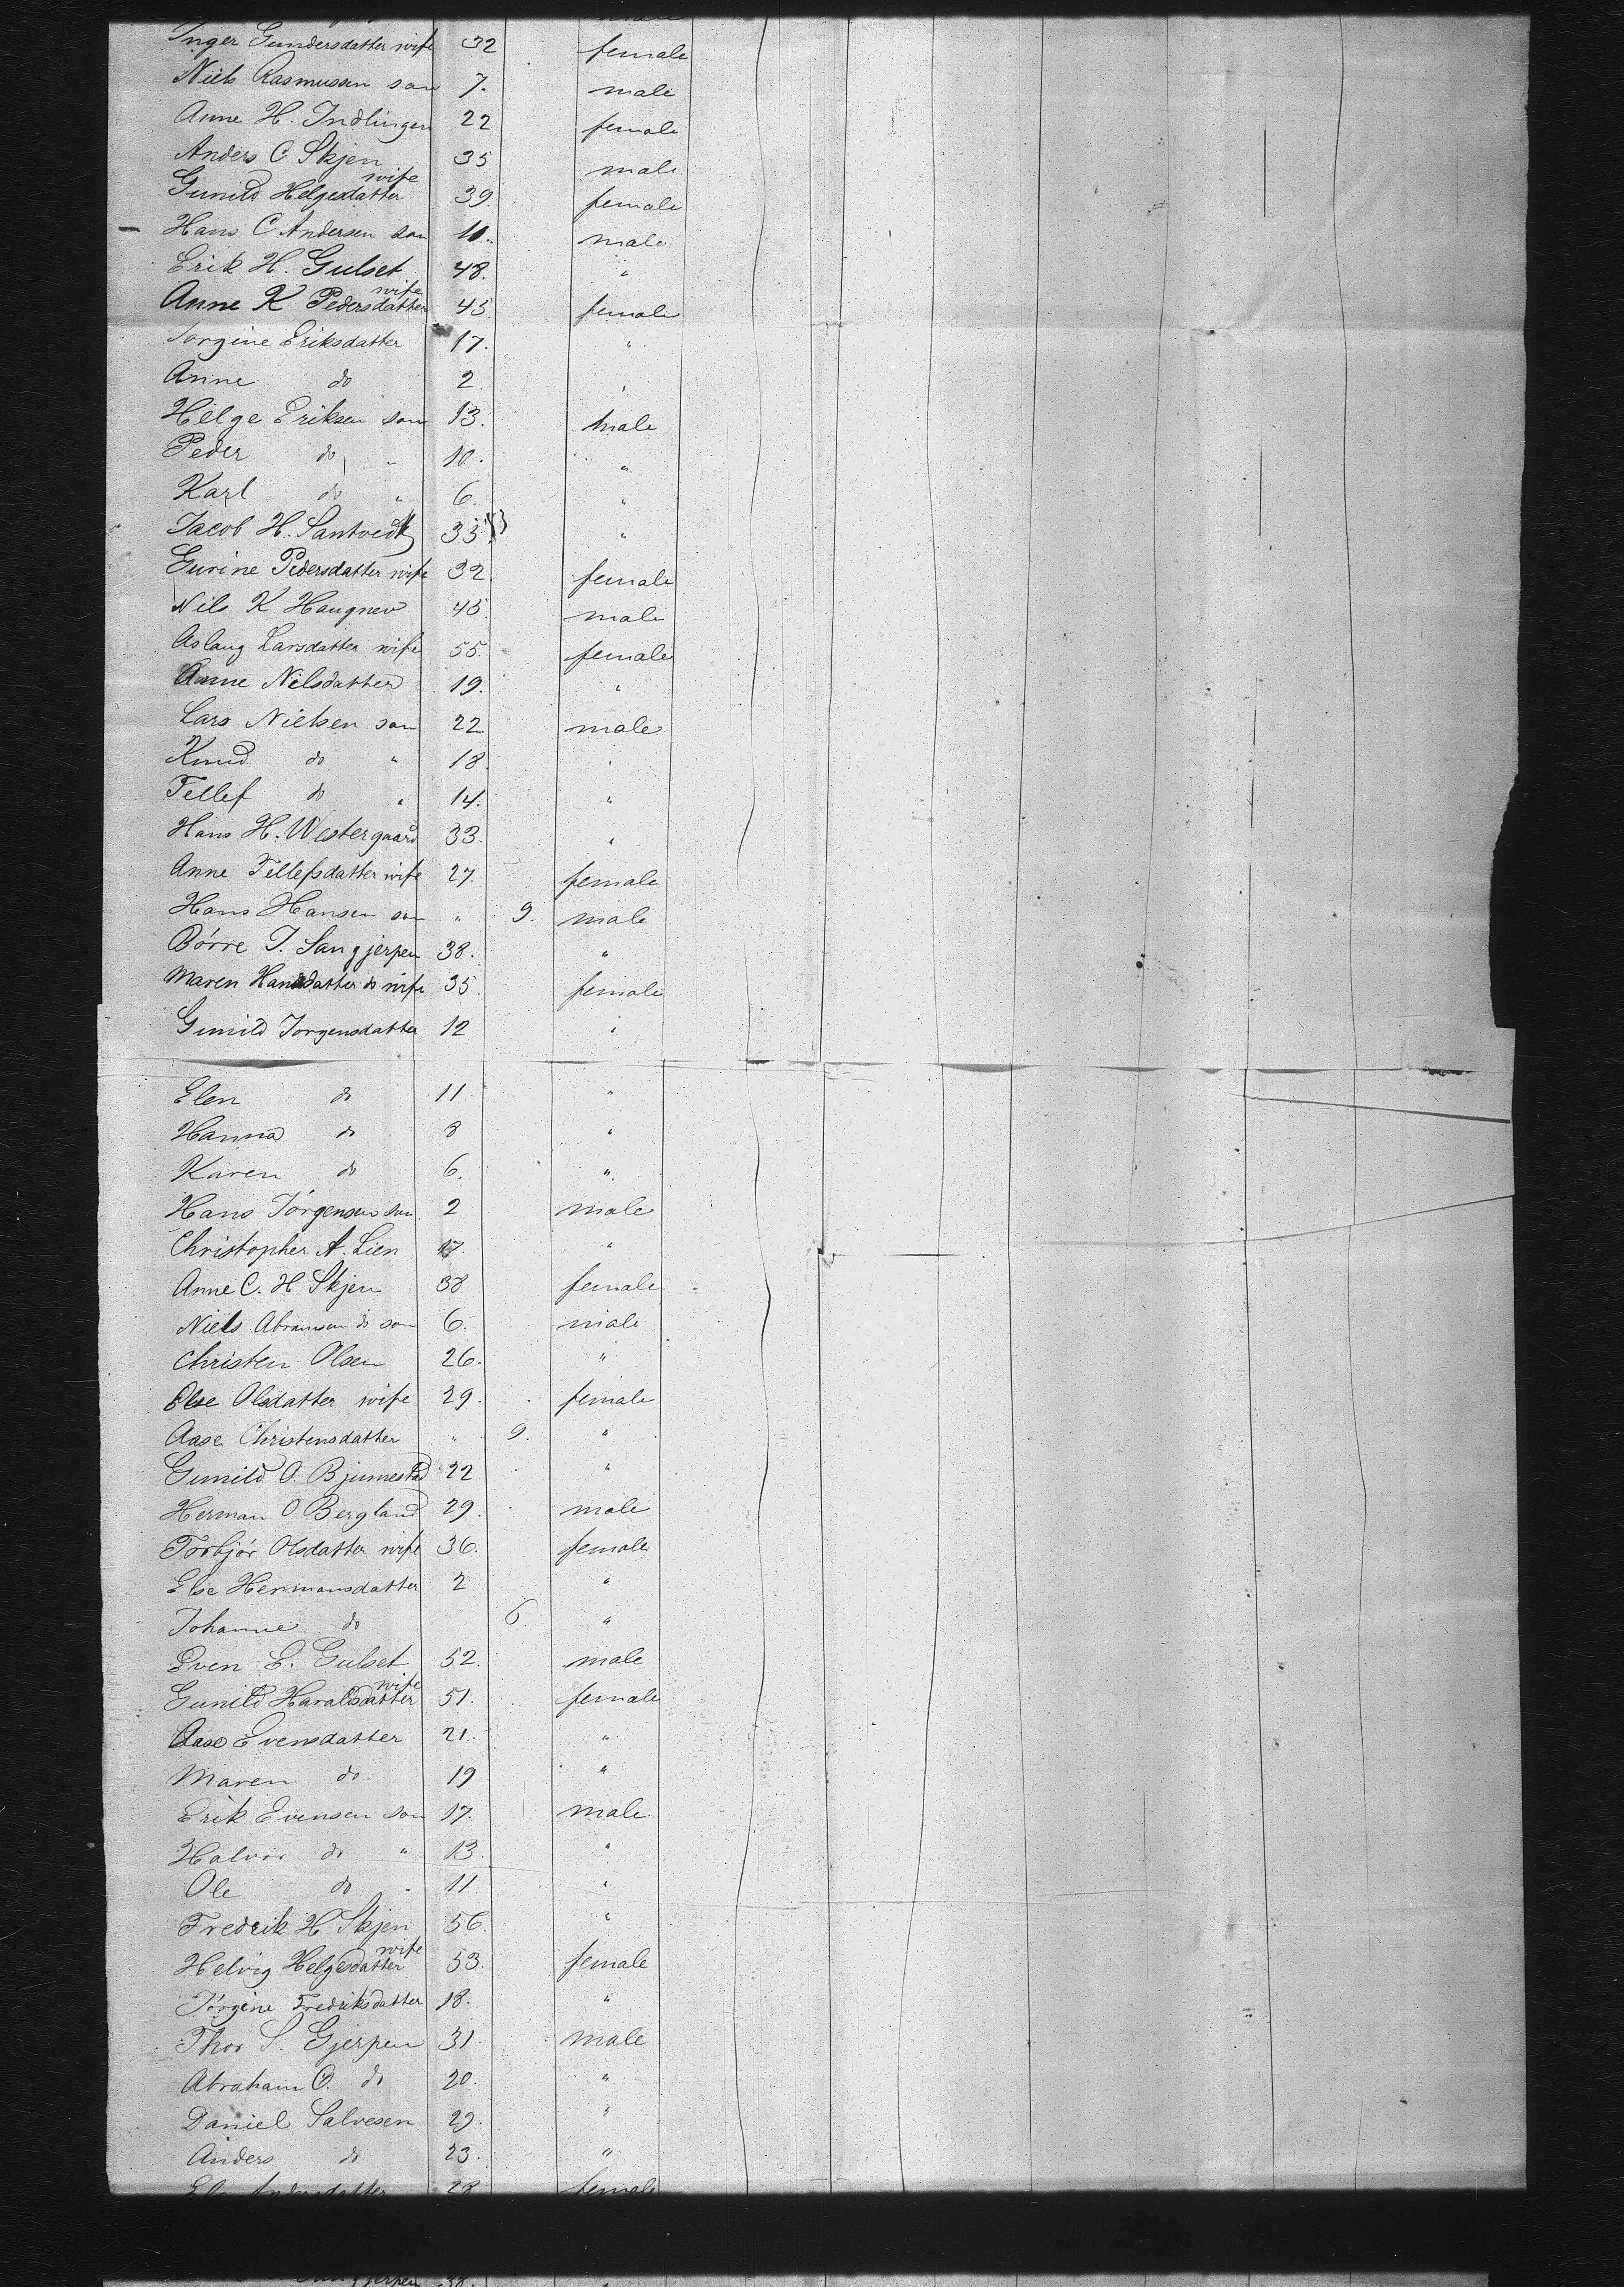 Inger Gundersdatter wife 32 female
Niels Rasmussen son 7. male
Anne H. Indlingen 22 female
Anders C Skjen 35 male
Gunild Helgesdatter wife 39. female
Hans C Andersen son 11. male
Erik H. Gulset 48. "
Anne K Pedersdatter wife 45. female
Jorgine Eriksdatter 17. "
Anne do 2. "
Helge Eriksen son 13. male
Peder do " 10. "
Karl do " 6. "
Jacob H. Santvedt 33 "
Gurine Pedersdatter wife 32. female
Nils K Haugnev 45. male
Aslaug Larsdatter wife 55. female
Anne Nilsdatter 19. "
Lars Nielsen son 22. male
Knud do " 18. "
Tellef do " 14. "
Hans H. Westergaard 33. "
Anne Tellefsdatter wife 27. female
Hans Hansen son " 9. male
Börre J. Sangjerpen 38. "
Maren Hansdatter do wife 35. female
Gunild Jorgensdatter 12 "
Elen do 11. "
Hanna do 8 "
Karen do 6. "
Hans Jörgensen son 2 male
Christopher A. Lien 17. "
Anne C. H Skjen 38 female
Niels Abramsen do son 6. male
Christen Olsen 26. "
Else Olsdatter wife 29. female
Aase Christensdatter " 9. "
Gunild O. Bjumestad 22 "
Herman O Bergland 29. male
Torbjör Olsdatter wife 36. female
Else Hermansdatter 2 "
Johanne do 6. "
Even E. Gulset 52. male
Gunild Haraldsdatter wife 51. female
Aase Evensdatter 21. "
Maren do 19 "
Erik Evensen son 17. male
Halvor do " 13. "
Ole do " 11. "
Fredrik H Skjen 56. "
Helvig Helgesdatter wife 53. female
Jörgine Fredriksdatter 18. "
Thor S. Gjerpen 31. male
Abraham O. do 20. "
Daniel Salvesen 29. "
Anders do 23. "
Andersdatter 28 female